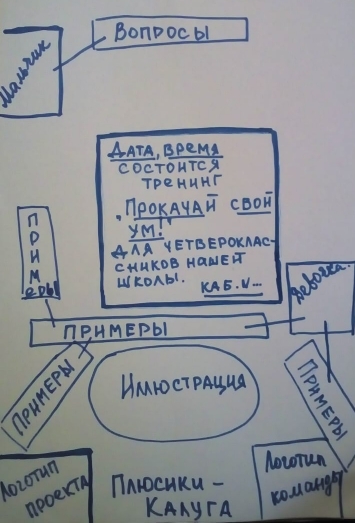 ВОПРОСЫ
Мальчик
ДАТА, ВРЕМЯ
СОСТОИТСЯ
ТРЕНИНГ
"ПРОКАЧАЙ СВОЙ
УМ!"
ДЛЯ ЧЕТВЕРОКЛАС-
СНИКОВ НАШЕЙ
ШКОЛЫ. КАБ.N...
ПРИМЕРЫ
Девочка
ПРИМЕРЫ
ПРИМЕРЫ
ИЛЛЮСТРАЦИЯ
ПРИМЕРЫ
ЛОГОТИП
ПРОЕКТА
ПЛЮСИКИ –
КАЛУГА
ЛОГОТИП
КОМАНДЫ